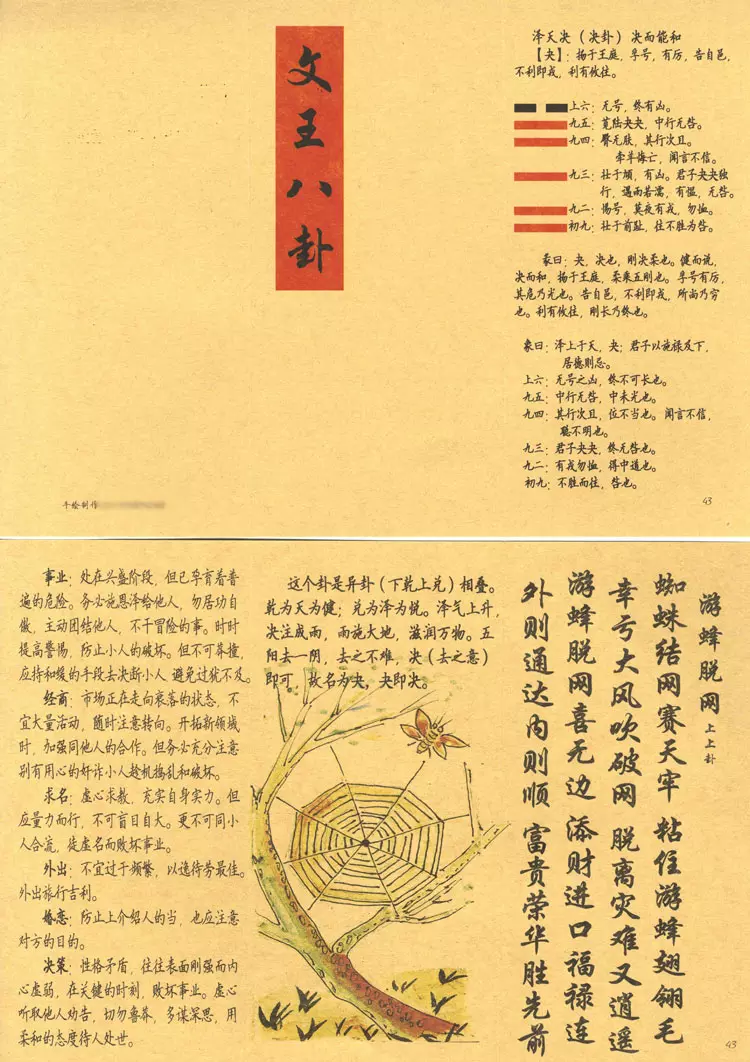 文王八卦
泽天决（决卦）决而能和
【夬】：扬于王庭，孚号，有厉，告自邑，
不利即戎，利有攸往。
上六：无号，终有凶。
九五：苋陆夬夬，中行无咎。
九四：臀无肤，其行次且。
牵羊悔亡，闻言不信。
九三：壮于頄，有凶。君子夬夬独
行，遇雨若濡，有愠，无咎。
九二：惕号，莫夜有戎，勿恤。
初九：壮于前趾，往不胜为咎。
彖曰：夬，决也，刚决柔也。健而说，
决而和，扬于王庭，柔乘五刚也。孚号有厉，
其危乃光也。告自邑，不利即戎，所尚乃穷
也。利有攸往，刚长乃终也。
象曰：泽上于天，夬；君子以施禄及下，
居德则忌。
上六：无号之凶，终不可长也。
九五：中行无咎，中未光也。
九四：其行次且，位不当也。闻言不信，
聪不明也。
九三：君子夬夬，终无咎也。
九二：有戎勿恤，得中道也。
初九：不胜而往，咎也。
手绘制作
43
游蜂脱网
上上卦
蜘蛛结网赛天牢 粘住游蜂翅翎毛
幸亏大风吹破网 脱离灾难又逍遥
游蜂脱网喜无边 添财进口福禄连
外则通达内则顺 富贵荣华胜先前
这个卦是异卦（下乾上兑）相叠。
乾为天为健；兑为泽为悦。泽气上升，
决注成雨，雨施大地，滋润万物。五
阳去一阴，去之不难，决（去之意）
即可，故名为夬，夬即决。
事业：处在兴盛阶段，但已孕育着普
遍的危险。务必施恩泽给他人，勿居功自
傲，主动团结他人，不干冒险的事。时时
提高警惕，防止小人的破坏。但不可莽撞，
应持和缓的手段去决断小人 避免过犹不及。
经商：市场正在走向衰落的状态，不
宜大量活动，随时注意转向。开拓新领域
时，加强同他人的合作。但务必充分注意
别有用心的奸诈小人趁机捣乱和破坏。
求名：虚心求教，充实自身实力。但
应量力而行，不可盲目自大。更不可同小
人合流，徒虚名而败坏事业。
外出：不宜过于频繁，以逸待劳最佳。
外出旅行吉利。
婚恋：防止上介绍人的当，也应注意
对方的目的。
决策：性格矛盾，往往表面刚强而内
心虚弱，在关键的时刻，败坏事业。虚心
听取他人劝告，切勿鲁莽，多谋深思，用
柔和的态度待人处世。
43